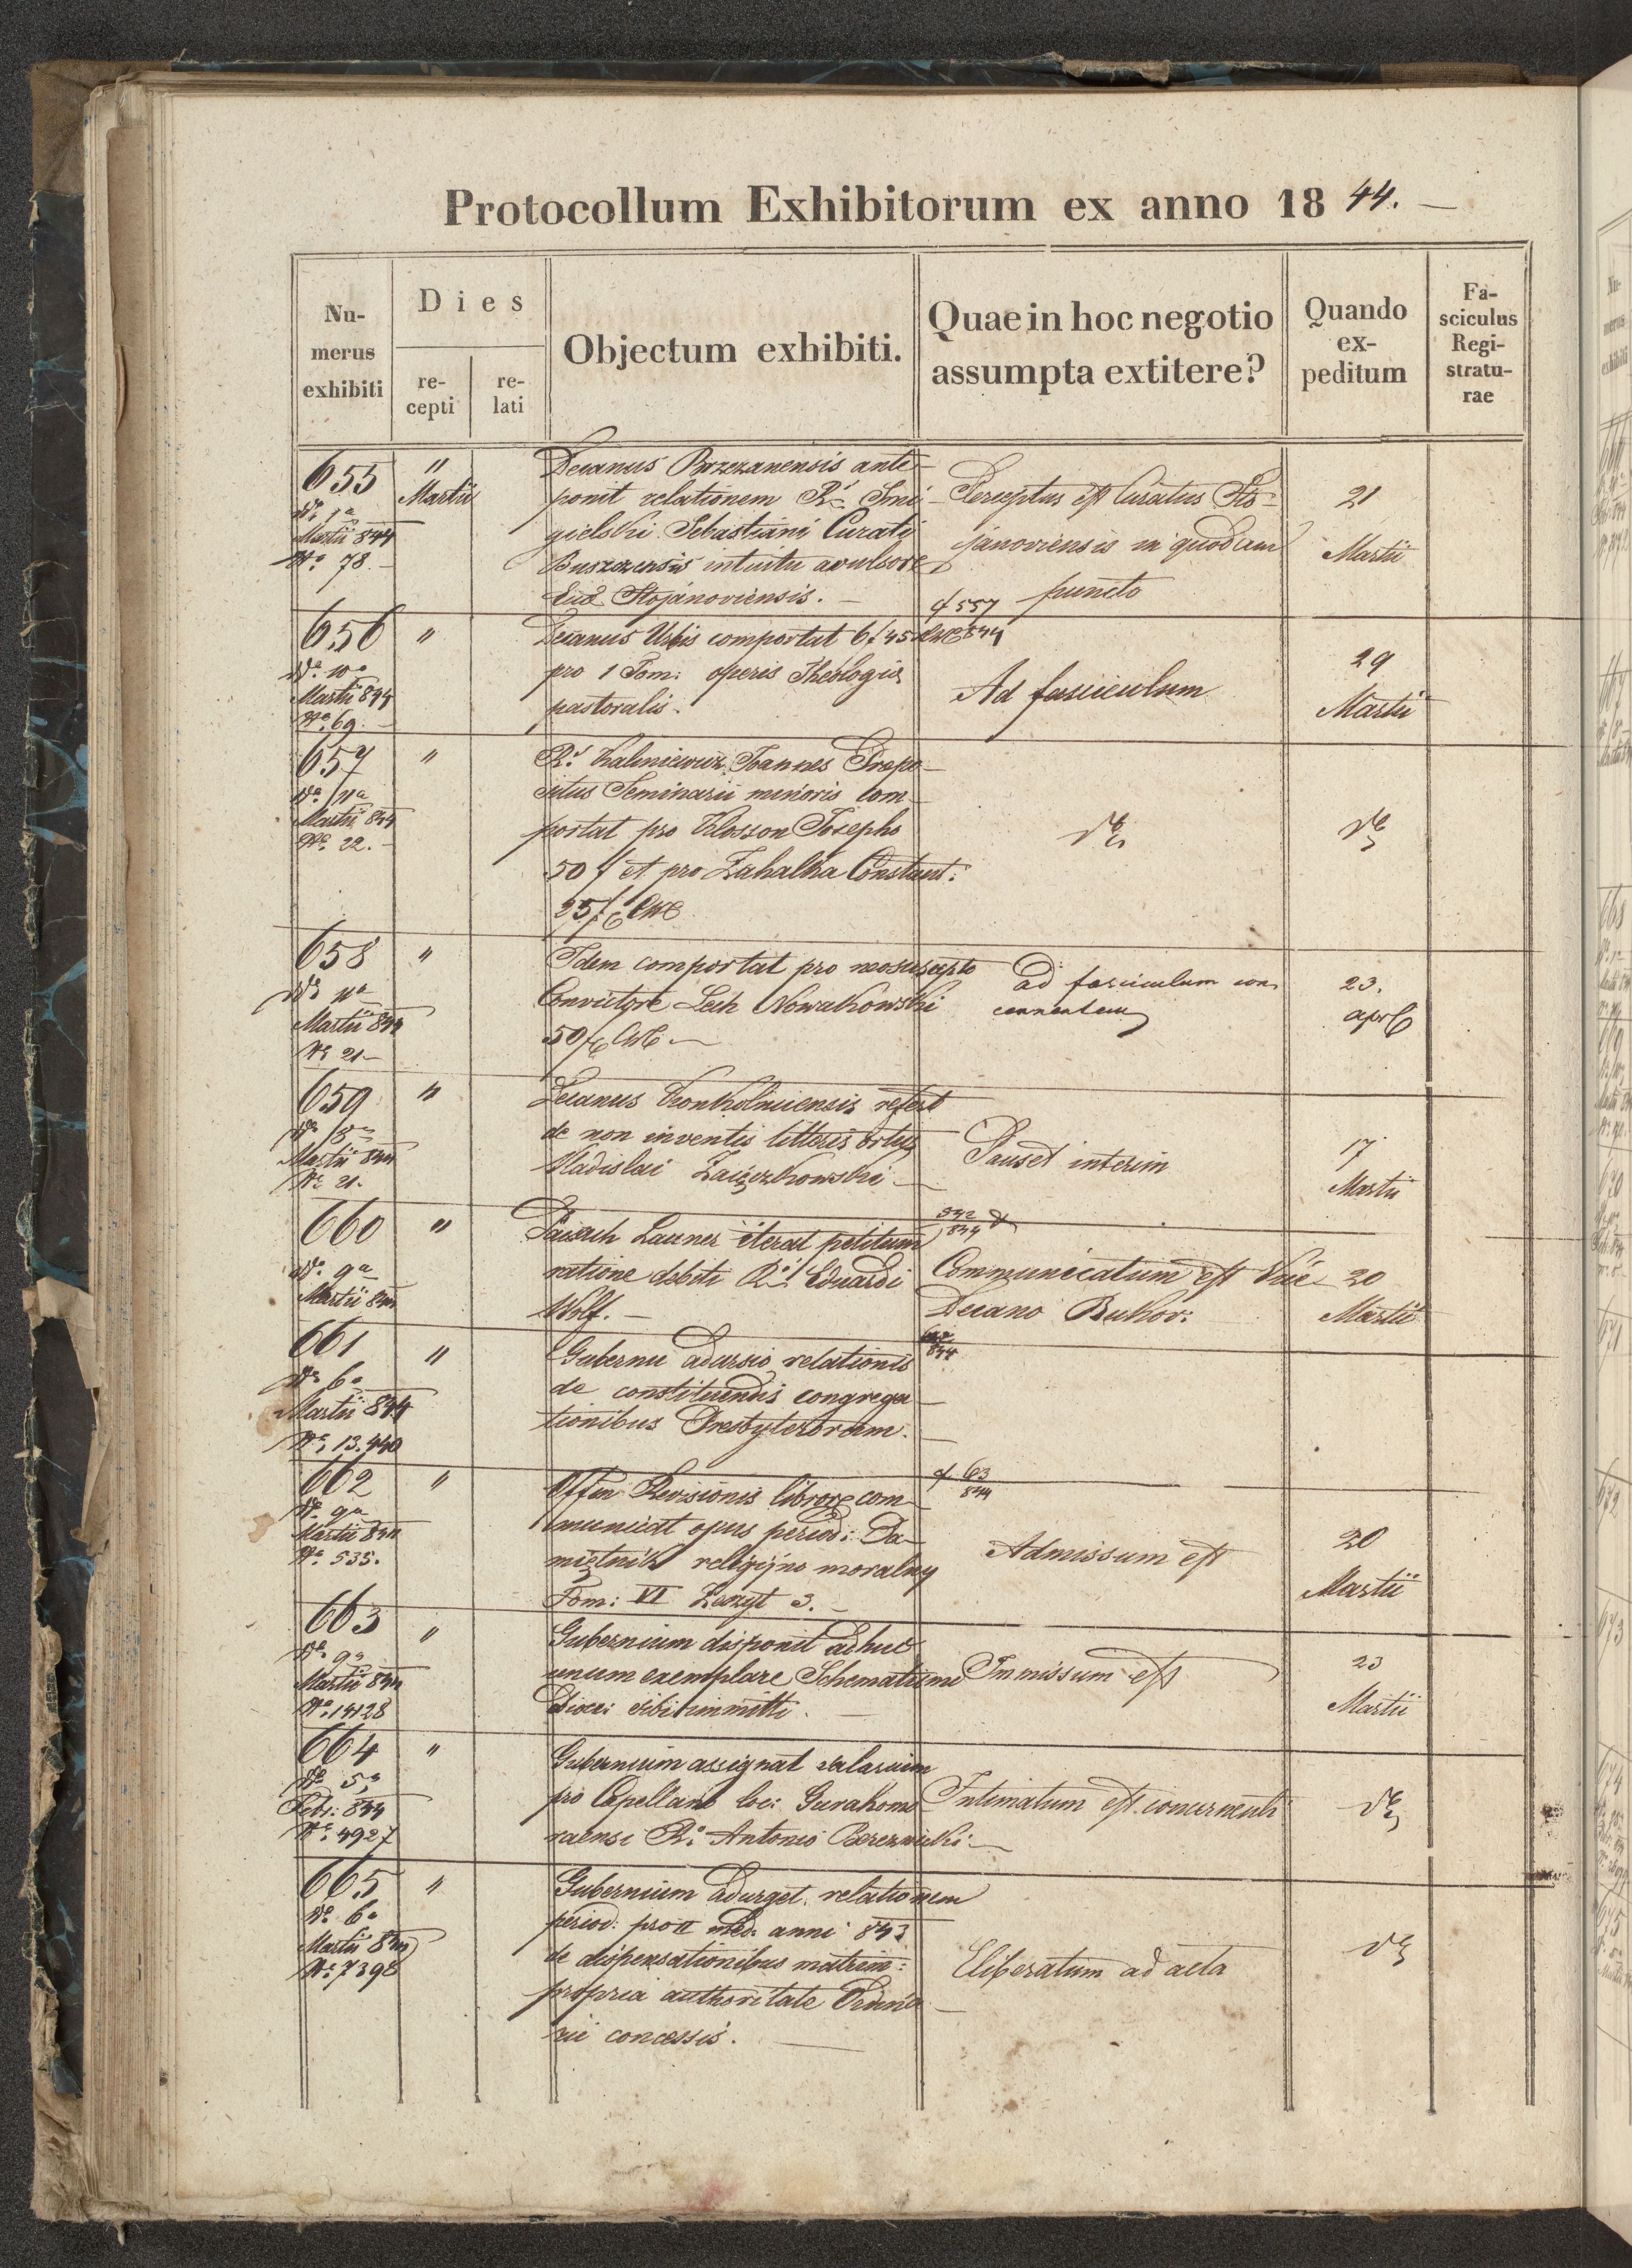 Protocollum Exhibitorum ex anno 1844.
Numerus exhibiti
Dies
recepti
relati
Objectum exhibiti.
Quae in hoc negotio assumpta extitere?
Quando expeditum
Fasciculus Registraturae
655
Martii 844
No 78.
"
Martii
Decanus Brzezanensis ante-
ponit relationem Ri Smi-
gielski Sebastiani Curati
Buszczensis intuitu avulsore
Stojanoviensis.
Perceptus est Curatus Sto-
janoviensis in quodam
puncto
21
Martii
656
do 10a
Martii 844
No 69.
"
Decanus Urbis comportat 6 f 45
pro 1 Tom: operis Theologiæ
pastoralis.
cf 557
844
Ad fasciculum
29
Martii
657
do 11a
Martii 844
No 22.
"
R. Joannes Præpo-
situs Seminarii minoris com-
portat pro Josepho
50 f et pro Zahalka Constant:
25 f
do
do
658
do 11a
Martii 844
No 21
"
Idem comportat pro neosuscepto
Convictore Lech Nowakowski
50 f
Ad fasciculum con-
cernentem
23.
apr
659
do 8a
Martii 844
No 21.
"
Decanus refert
de non inventis litteris ortus
Vladislai Zajączkowski
Pauset interim
17
Martii
660
do 9a
Martii 844
"
Launer iterat petitum
ratione debiti Ri Eduardi
Wolf.
542
844
Communicatum est Vice
Decano Bukov:
20
Martii
661
do 6a
Martii 844
No 13.440
"
Gubernii adursio relationis
de constituendis congrega-
tionibus Presbyterorum.
844
662
do 9a
Martii 844
No 535.
"
Offm Revisionis librorum com-
municat opus period: Pa-
miętnik religijno moralny
Tom: VI Zeszyt 3.
cf 63
844
Admissum est
20
Martii
663
do 9a
Martii 844
No 14128
"
Gubernium disponit adhuc
unum exemplare Schematismi
Dioec: sibi immitti.
Immissum est
23
Martii
664
do 5a
Febr: 844
No 4927
"
Gubernium assignat salarium
pro Capellano loc: Gurahomo-
raensi Ro Antonio
Intimatum est concernenti
do
665
do 6a
Martii 844
No 7398
"
Gubernium adurget relationem
period: pro II med: anni 843
de dispensationibus matrim:
propria authoritate Ordina-
rii concessis.
Eliberatum ad acta
do